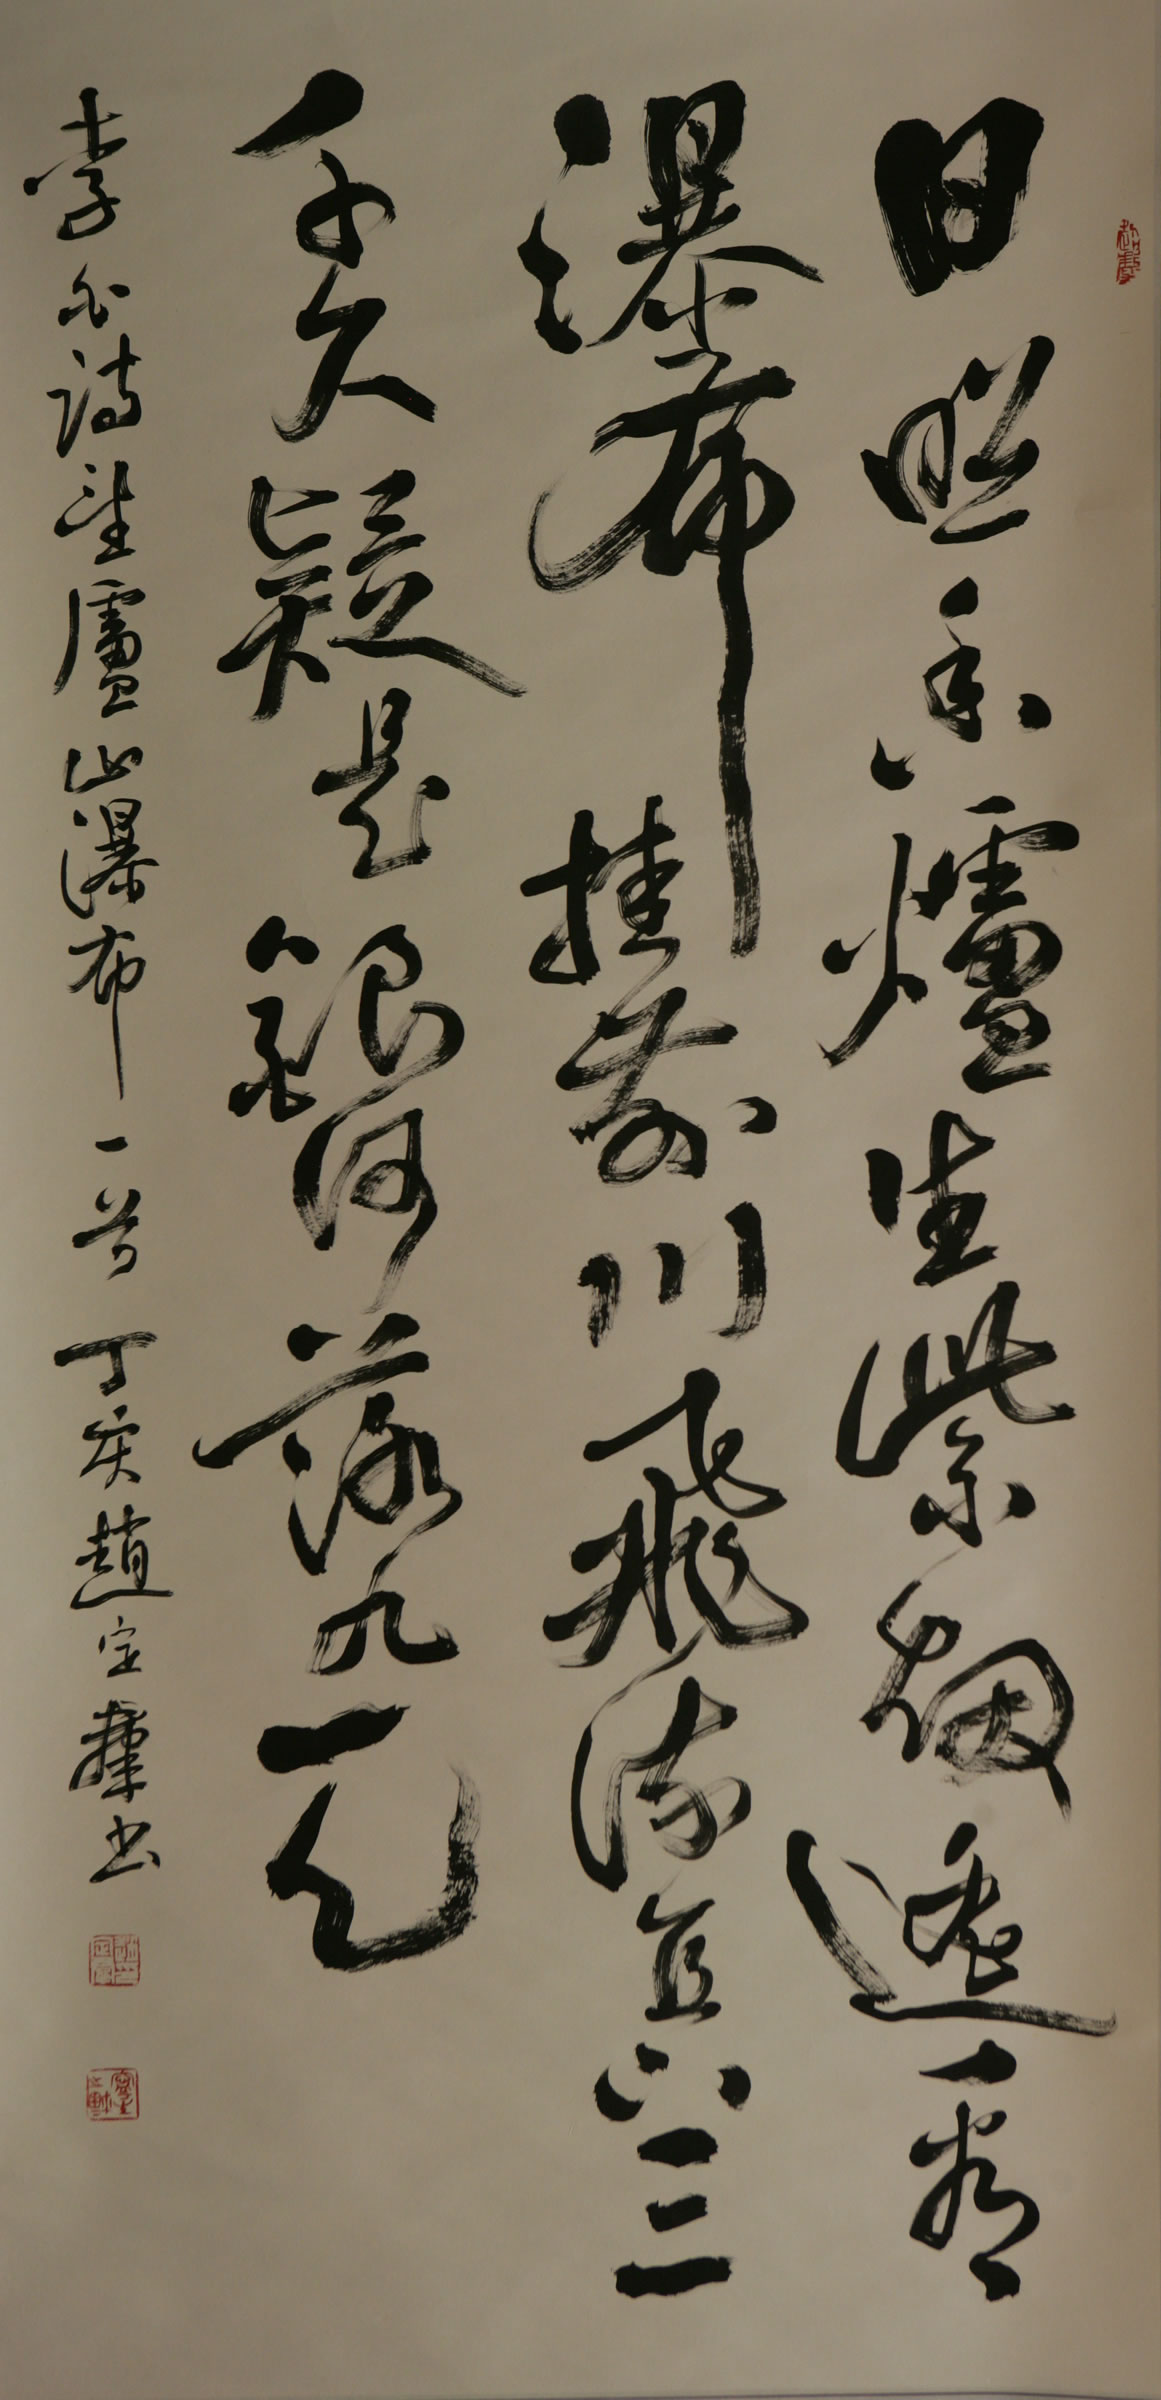 日照香爐生紫烟遙看
瀑布挂前川飛流直下三
千尺疑是銀河落九天
李白詩望廬山瀑布一首丁亥趙定群書